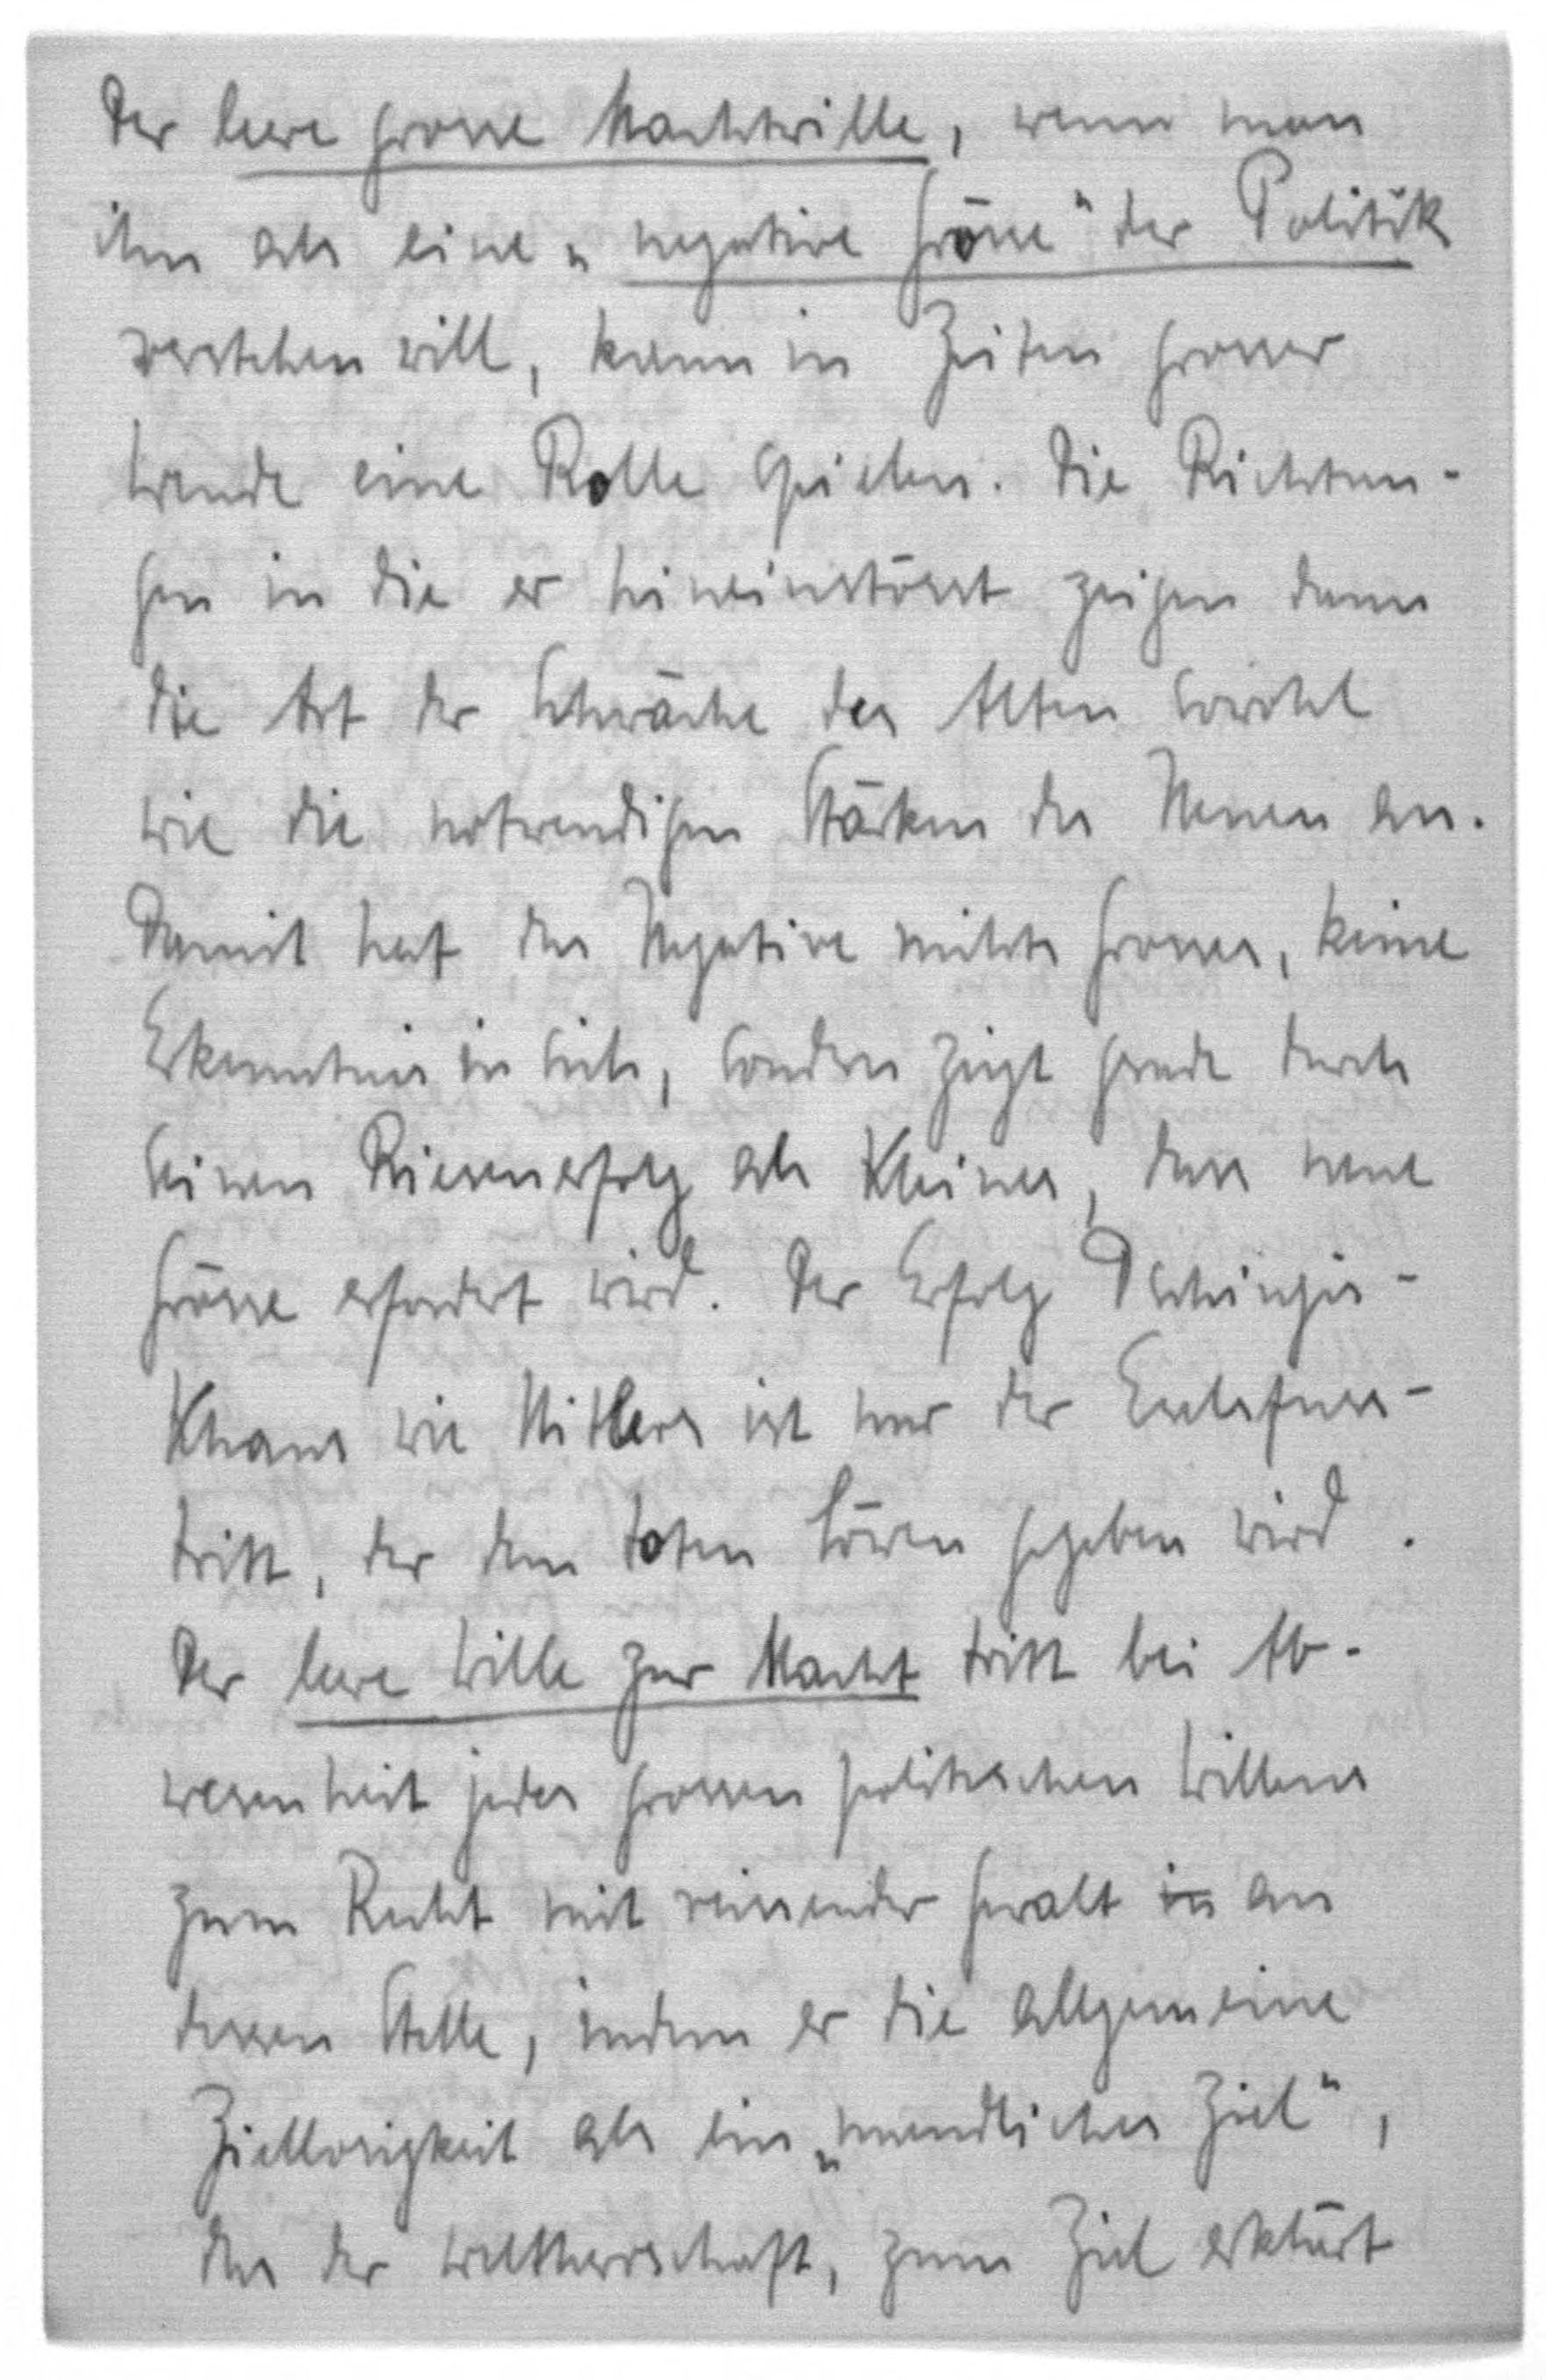 Der leere grosse Machtwille, wenn man
ihn als eine „negative Grösse" der Politik
verstehen will, kann in Zeiten grosser
Wende eine Rolle spielen. Die Richtun-
gen in die er hineinstösst zeigen dann
die Art der Schwäche des Alten sowohl
wie die notwendigen Stärken des Neuen an.
Damit hat das Negative nichts Grosses, keine
Erkenntnis in sich, sondern zeigt grade durch
seinen Riesenerfolg als Kleines, dass neue
Grösse erfordert wird. Der Erfolg Dschingis-
Khans wie Hitlers ist nur der Eselsfuss-
tritt, der dem toten Löwen gegeben wird.
Der leere Wille zur Macht tritt bei Ab-
wesenheit jedes grossen politischen Willens
zum Recht mit reissender Gewalt in an
dessen Stelle, indem er die allgemeine
Ziellosigkeit als ein „unendliches Ziel",
das der Weltherrschaft, zum Ziel erklärt